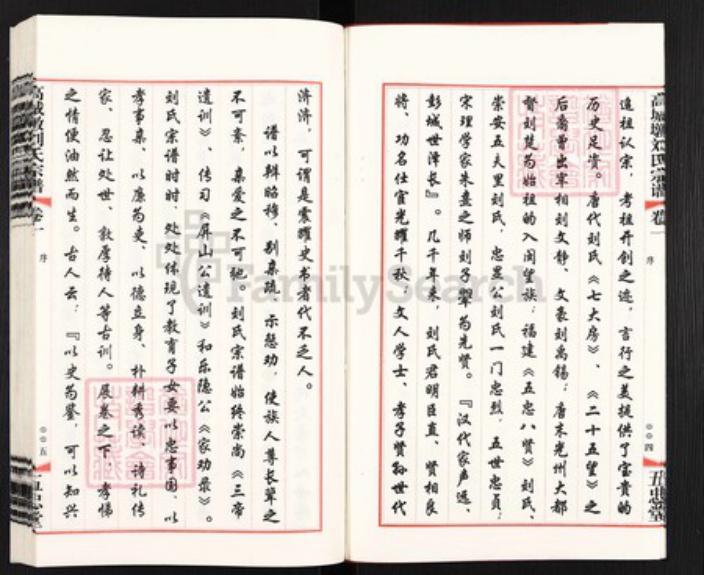 高城墩刘氏宗谱
卷一
序
追祖认宗，考祖开创之迹，言行之美提供了宝贵的
历史足资。唐代刘氏《七大房》、《二十五望》之
后裔曾出宰相刘文静、文豪刘禹锡；唐末光州大都
督刘楚为始祖的入闽望族：福建《五忠八贤》刘氏、
崇安五夫里刘氏，忠显公刘氏一门忠烈，五世忠贞；
宋理学家朱熹之师刘子翚为先贤。『汉代家声远，
彭城世泽长』。几千年来，刘氏君明臣直、贤相良
将、功名仕宦光耀千秋，文人学士、孝子贤孙世代
〇〇四
五忠堂
济济，可谓是震耀史书者代不乏人。
谱以辩昭穆、别亲疏，示惩劝，使族人尊长卑之
不可紊，亲爱之不可驰。刘氏宗谱始终崇尚《三帝
遗训》、传习《屏山公遗训》和乐隐公《家劝录》。
刘氏宗谱时时、处处体现了教育子女要以忠事国、以
孝事亲、以廉为吏、以德立身、朴耕秀读、诗礼传
家、忍让处世、敦厚待人等古训。展卷之下，孝悌
之情便油然而生。古人云：『以史为鉴，可以知兴
高城墩刘氏宗谱
卷一
序
〇〇五
五忠堂
FamilySearch